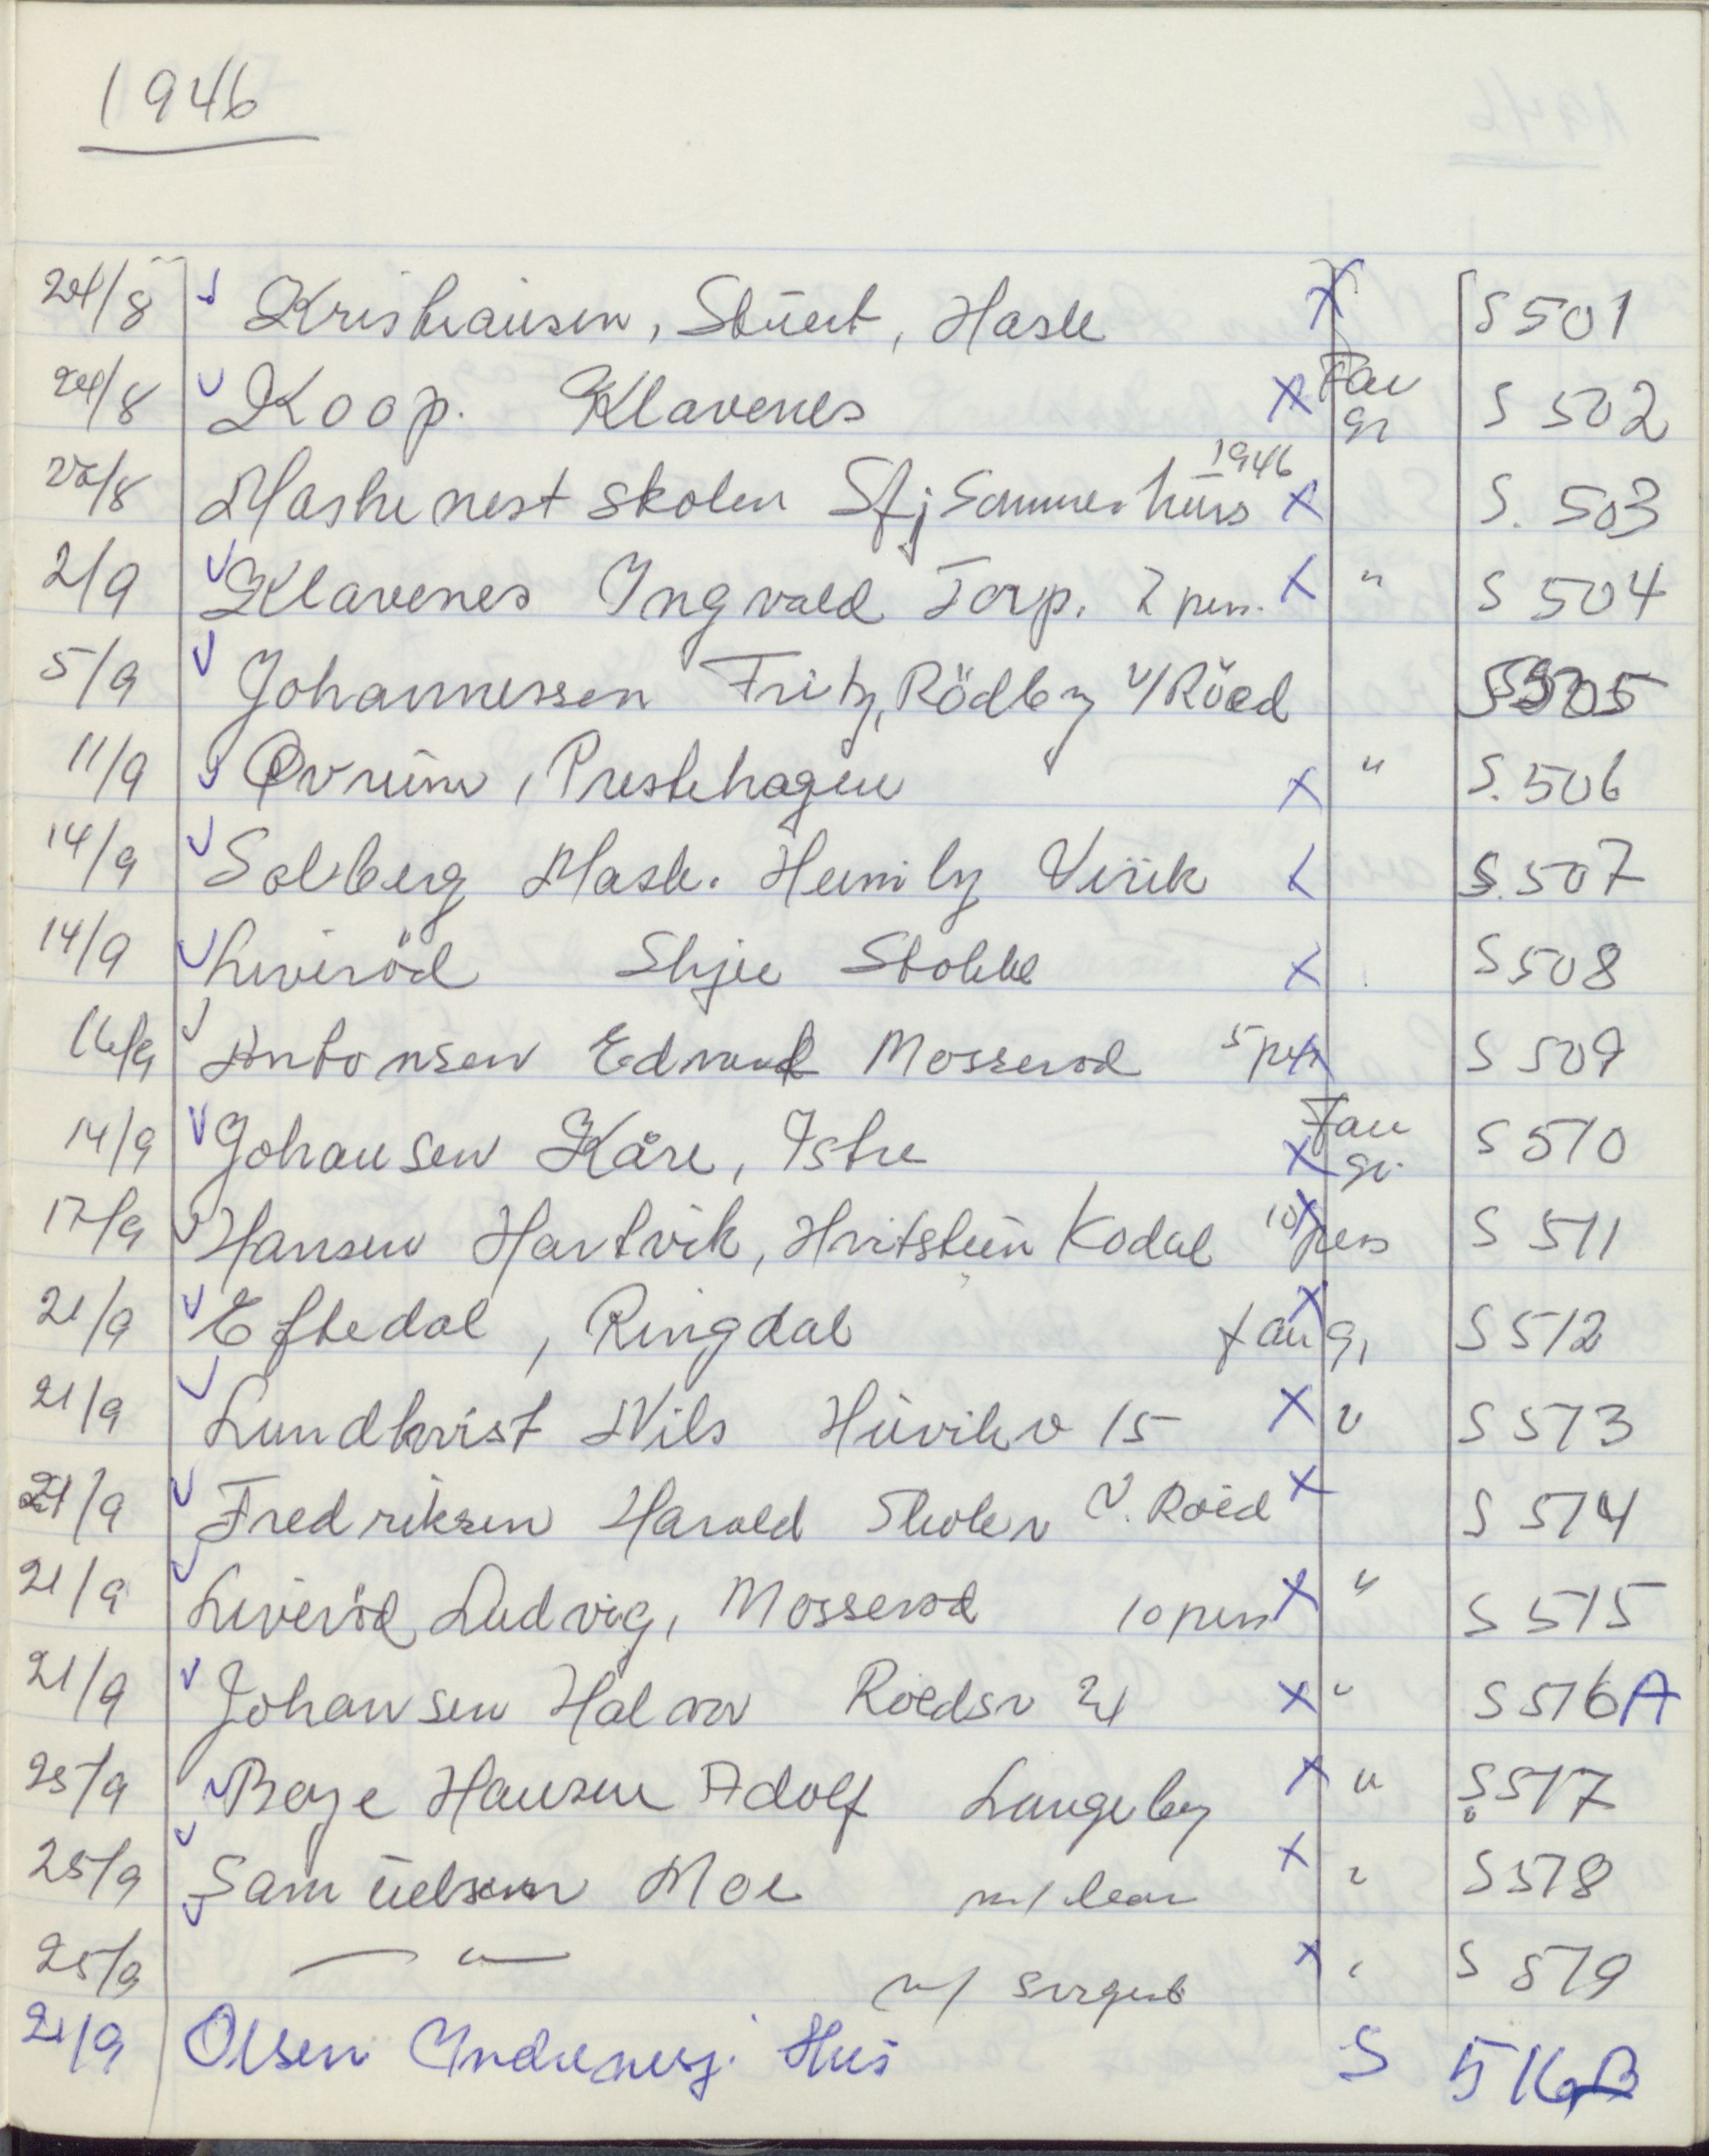 1946
24/8 Kristiansen, Stuert, Hasle X S 501
24/8 Koop. Klavenes X Far gr S 502
26/8 Maskinestskolen Sfj Sommerkurs 1946 X S. 503
2/9 Klavenes Ingvald Torp. 2 pers. X " S 504
5/9 Johannessen Fritz, Rödby v/Röed S 505
11/9 Ovrum, Prestehagen X " S. 506
14/9 Solberg Mask. Heimly Virik S. 507
14/9 Liveröd Skjee Stokke X S 508
16/9 Antonsen Edmund Mosserød 5 pers S 509
14/9 Johansen Kåre, Istre X Far gr. S 510
17/9 Hansen Hartvik, Hvitstein Kodal 10 pers S 511
21/9 Eftedal, Ringdal X farg, S 512
21/9 Lundkvist Nils Huvikv 15 X " S 513
21/9 Fredriksen Harald Skolev V. Roed X S 514
21/9 Liveröd Ludvig, Mosserød 10 pers X " S 515
21/9 Johansen Halvor Roedsv 21 X " S 516A
25/9 Boye Hansen Adolf Langeby X " S 517
25/9 Samuelsen Moe m/ X " S 518
25/9 — " — m/ X " S 519
21/9 Olsen Hus S 516B